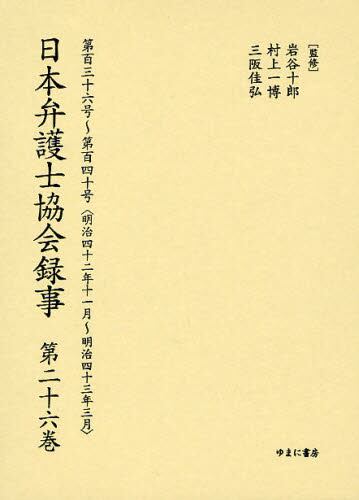 [監修]
岩谷十郎
村上一博
三阪佳弘
第百三十六号～第百四十号〈明治四十二年十一月～明治四十三年三月〉
日本弁護士協会録事 第二十六巻
ゆまに書房